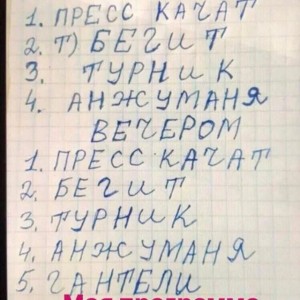 1. ПРЕСС КАЧАТ
2. Т) БЕГИТ
3. ТУРНИК
4. АНЖУМАНЯ
ВЕЧЕРОМ
1. ПРЕСС КАЧАТ
2. БЕГИТ
3. ТУРНИК
4. АНЖУМАНЯ
5. ГАНТЕЛИ